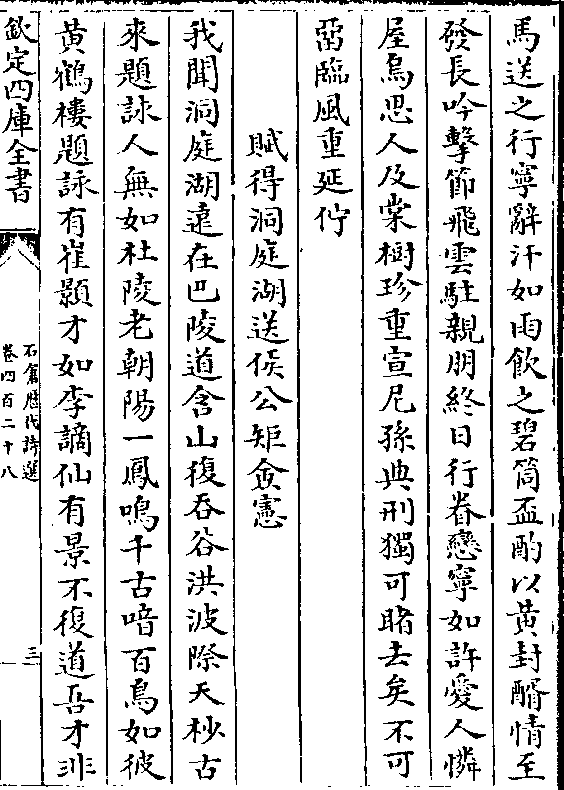 馬送之行寧辭汗如雨飲之碧筒盃酌以黄封醑情至
發長吟擊節飛雲駐親朋終日行眷戀寧如許愛人憐
屋烏思人及棠樹珍重宣尼孫典刑獨可睹去矣不可
留臨風重延佇
賦得洞庭湖送侯公矩僉憲
我聞洞庭湖遠在巴陵道含山復吞谷洪波際天杪古
來題詠人無如杜陵老朝陽一鳳鳴千古喑百鳥如彼
黄鶴樓題詠有崔顥才如李謫仙有景不復道吾才非
欽定四庫全書
石倉歴代詩選
卷四百二十八
三